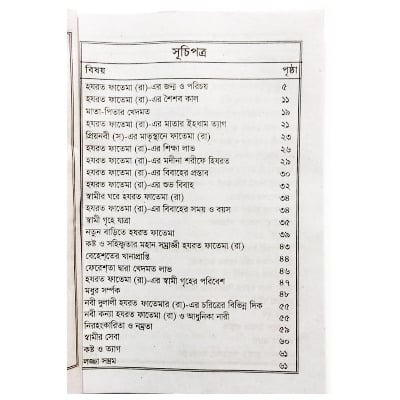 সূচিপত্র
বিষয় পৃষ্ঠা
হযরত ফাতেমা (রা)-এর জন্ম ও পরিচয় ৫
হযরত ফাতেমা (রা)-এর শৈশব কাল ১১
মাতা-পিতার খেদমত ১৯
হযরত ফাতেমা (রা)-এর মাতার ইহধাম ত্যাগ ২১
প্রিয়নবী (স)-এর মাতৃস্থানে ফাতেমা (রা) ২৩
হযরত ফাতেমা (রা)-এর শিক্ষা লাভ ২৬
হযরত ফাতেমা (রা)-এর মদীনা শরীফে হিযরত ২৯
হযরত ফাতেমা (রা)-এর বিবাহের প্রস্তাব ৩০
হযরত ফাতেমা (রা)-এর শুভ বিবাহ ৩২
স্বামীর ঘরে হযরত ফাতেমা (রা) ৩৪
হযরত ফাতেমা (রা)-এর বিবাহের সময় ও বয়স ৩৪
স্বামী গৃহে যাত্রা ৩৫
নতুন বাড়িতে হযরত ফাতেমা ৩৯
কষ্ট ও সহিষ্ণুতার মহান সম্রাজ্ঞী হযরত ফাতেমা (রা) ৪৩
বেহেশতের খানাপ্রাপ্তি ৪৪
ফেরেশ্তা দ্বারা খেদমত লাভ ৪৬
হযরত ফাতেমা (রা)-এর স্বামী গৃহের পরিবেশ ৪৭
মধুর সম্পর্ক ৪৮
নবী দুলালী হযরত ফাতেমার (রা)-এর চরিত্রের বিভিন্ন দিক ৫৫
নবী কন্যা হযরত ফাতেমা (রা) ও আধুনিকা নারী ৫৫
নিরহংকারিতা ও নম্রতা ৫৯
স্বামীর সেবা ৬০
কষ্ট ও ত্যাগ ৬১
লজ্জা সম্ভ্রম ৬১